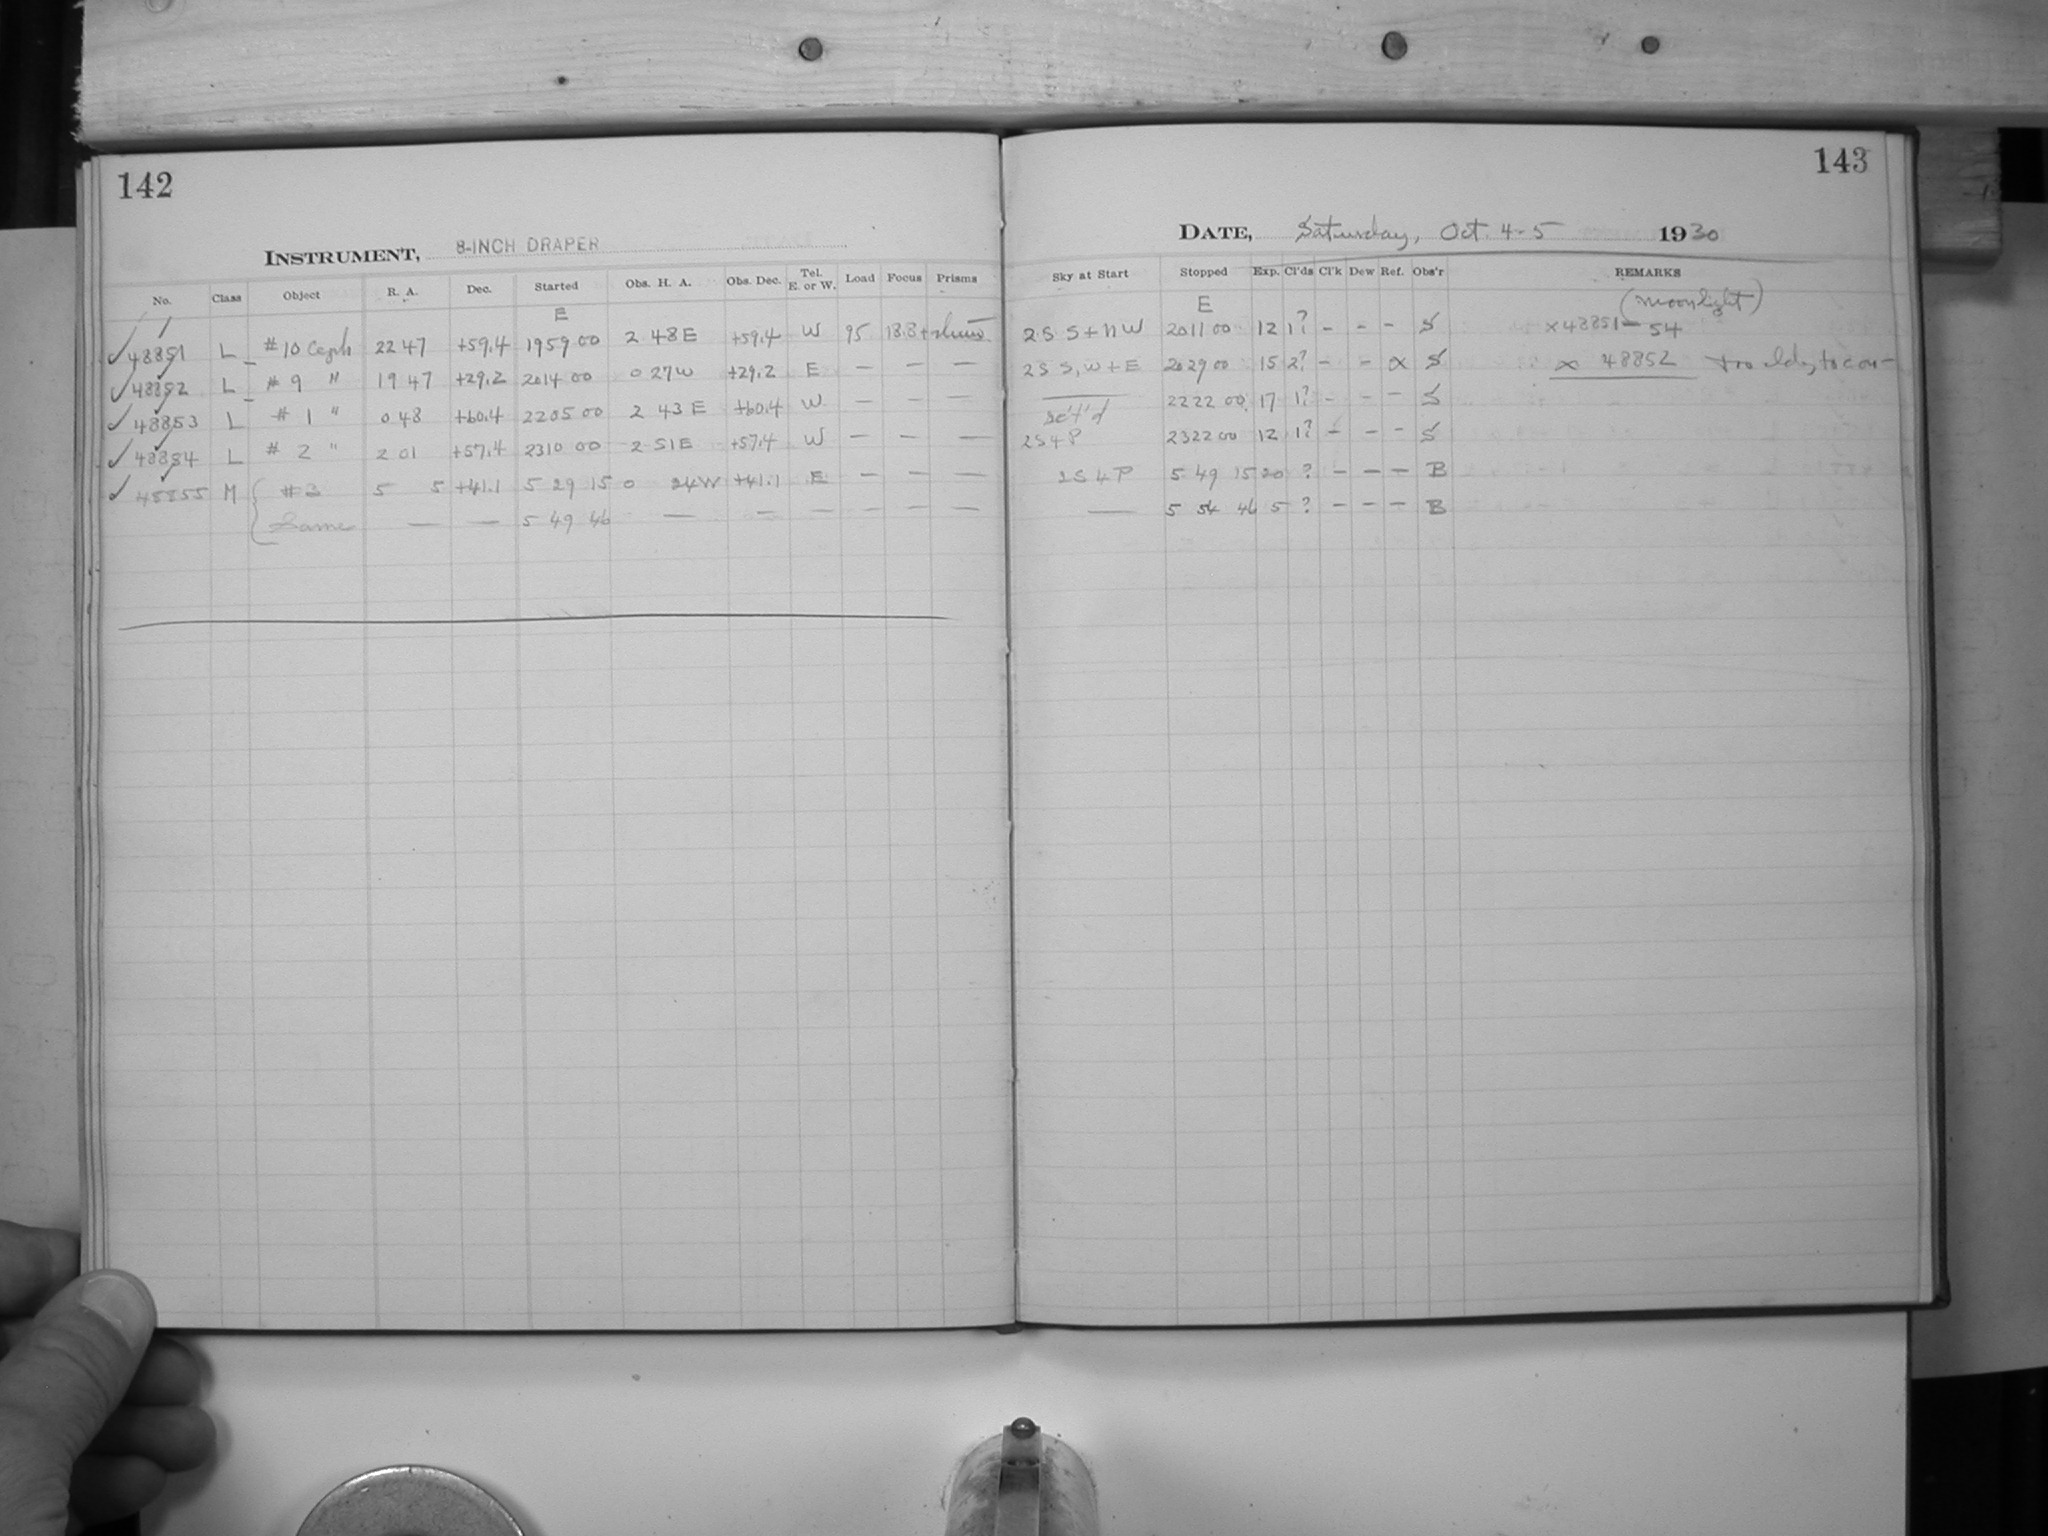 142
INSTRUMENT, 8-INCH DRAPER
No. Class Object R. A. Dec. Started Obs. H. A. Obs. Dec. Tel. E. or W. Load Focus Prisms
E
48851 L #10 Ceph 22 47 +59.4 19 59 00 2 48 E +59.4 W 95 18.8+
48852 L #9 " 19 47 +29.2 20 14 00 0 27 W +29.2 E — — —
48853 L #1 " 0 48 +60.4 22 05 00 2 43 E +60.4 W — — —
48854 L #2 " 2 01 +57.4 23 10 00 2 51 E +57.4 W — — —
48855 M #3 5 5 +41.1 5 29 15 0 24 W +41.1 E — — —
Same — — 5 49 46 — — — — — —
143
DATE, Saturday, Oct. 4-5 1930
Sky at Start Stopped Exp. Cl'ds Cl'k Dew Ref. Obs'r REMARKS
E (moonlight)
2 S S + N W 20 11 00 12 1? - - - S x 48851-54
2 S S, W + E 20 29 00 15 2? - - x S x 48852
22 22 00 17 1? - - - S
2S4P 23 22 00 12 1? - - - S
2S4P 5 49 15 20 ? - - - B
— 5 54 46 5 ? - - - B